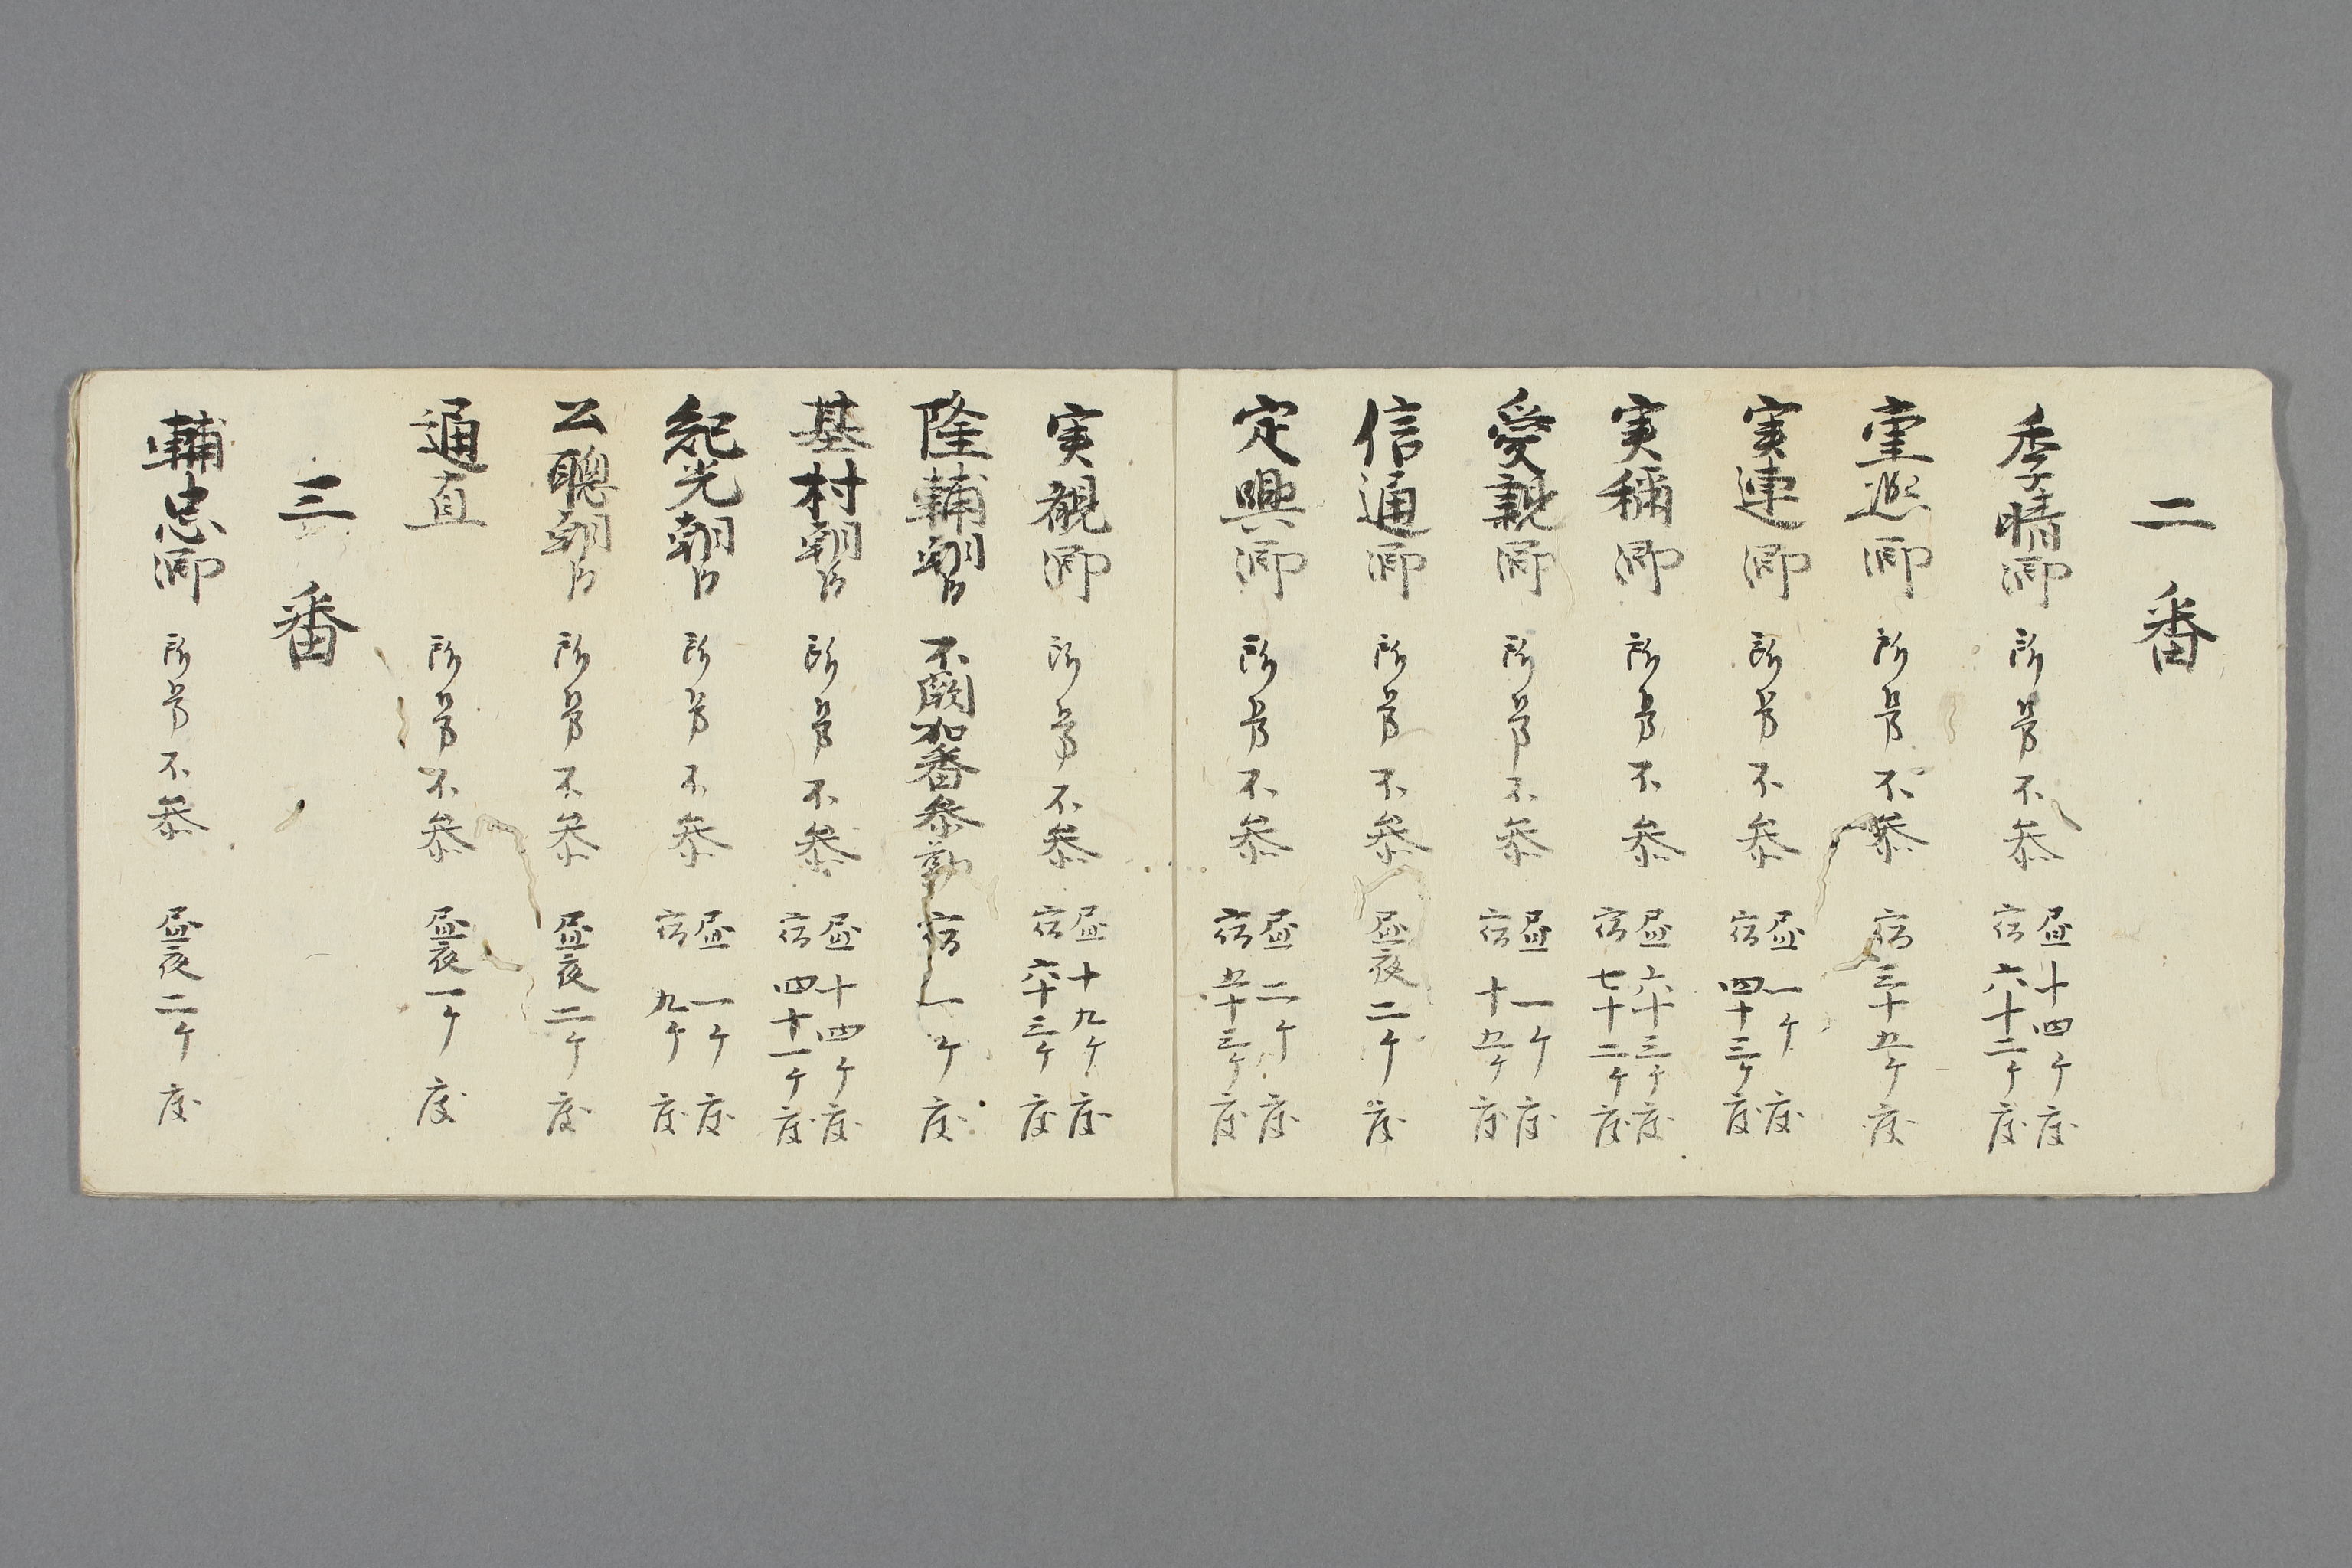 二番
季晴卿 所労不参 昼十四ケ度
宿六十二ケ度
重煕卿 所労不参 宿三十五ケ度
実連卿 所労不参 昼一ケ度
宿四十三ケ度
実稱卿 所労不参 昼六十三ケ度
宿七十二ケ度
愛親卿 所労不参 昼一ケ度
宿十五ケ度
信通卿 所労不参 昼夜二ケ度
定興卿 所労不参 昼二ケ度
宿五十三ケ度
実観卿 所労不参 昼十九ケ度
宿六十三ケ度
隆輔朝臣 不闕加番参勤 宿一ケ度
基村朝臣 所労不参 昼十四ケ度
宿四十一ケ度
紀光朝臣 所労不参 昼一ケ度
宿九ケ度
公聰朝臣 所労不参 昼夜二ケ度
通直 所労不参 昼夜一ケ度
三番
輔忠卿 所労不参 昼夜二ケ度